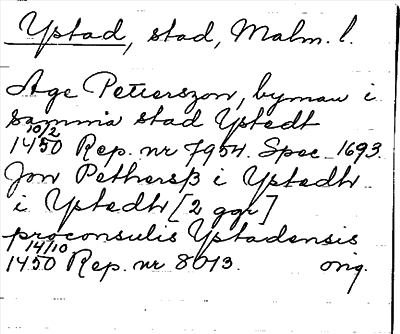 Ystad, stad, Malm. l.
Age Peterszon, byman i
samma stad Ystedt
10/2
1450 Rep. nr 7954. Spec 1693.
Jon Pethersß i Ystedh
i Ystedh [2 ggr]
proconsulis Ystadensis
14/10
1450 Rep. nr 8013. orig.